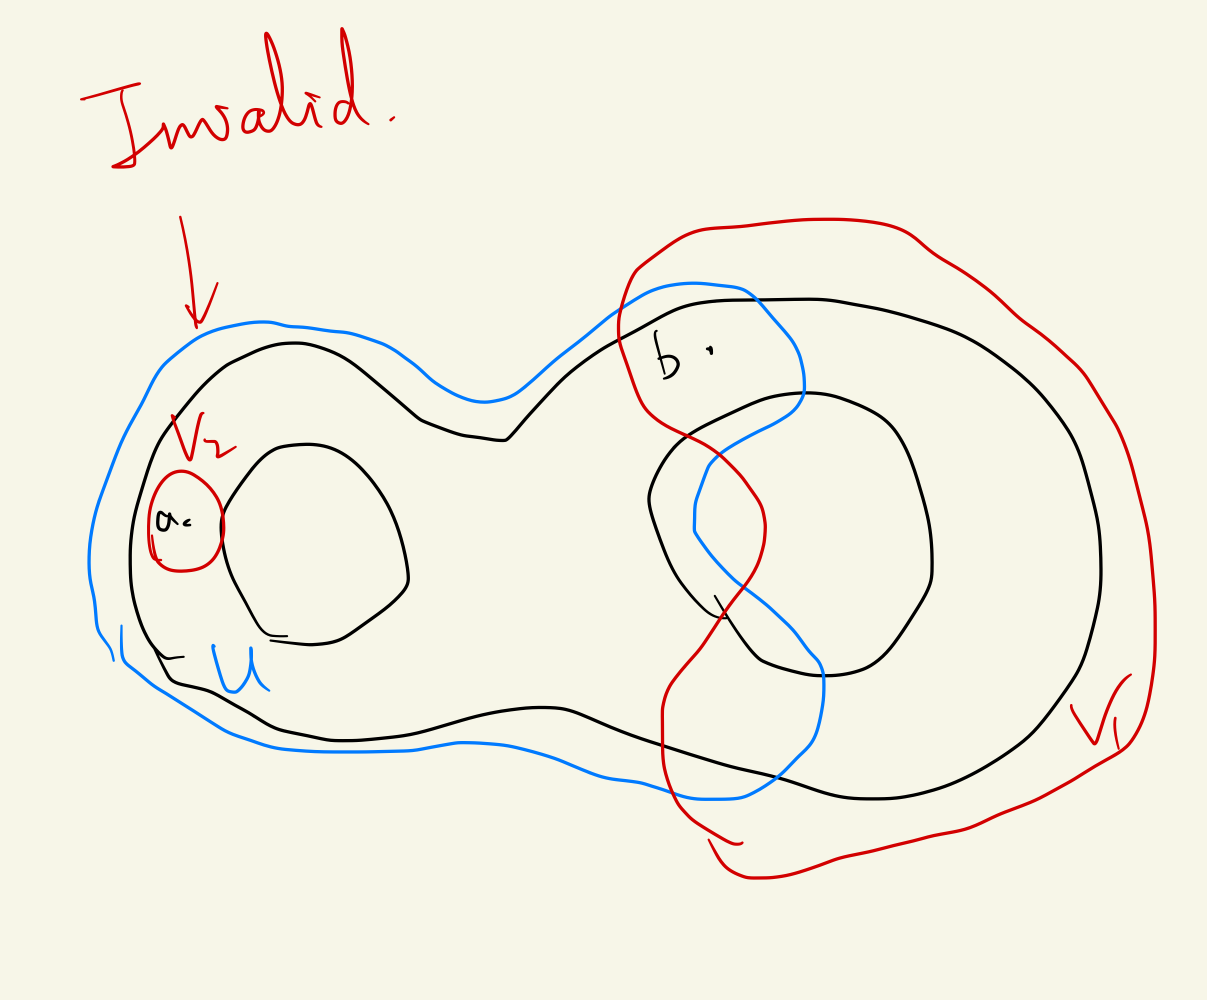 Invalid.
b .
V₂
a.
U
V